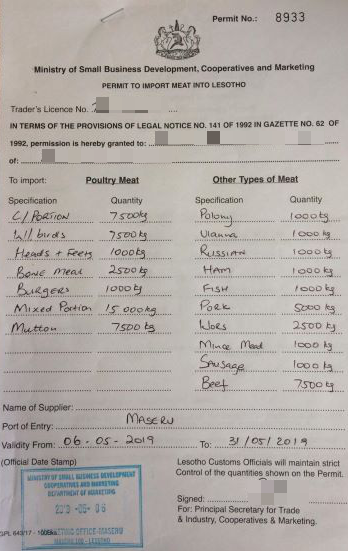 Permit No.: 8933
Ministry of Small Business Development, Cooperatives and Marketing
PERMIT TO IMPORT MEAT INTO LESOTHO
Trader's Licence No.
IN TERMS OF THE PROVISIONS OF LEGAL NOTICE NO. 141 OF 1992 IN GAZETTE NO. 62 OF
1992, permission is hereby granted to:
of:
To import: Poultry Meat Other Types of Meat
Specification Quantity Specification Quantity
C/PORTION 7500kg Polony 1000kg
W/birds 7500kg Vianna 1000kg
Heads + Feets 1000kg RUSSIAN 1000kg
Bone meal 2500kg HAM 1000kg
Burgers 1000kg FISH 1000kg
Mixed Portion 15 000kg Pork 5000kg
Mutton 7500kg Wors 2500kg
Mince 1000kg
Sausage 1000kg
Beef 7500kg
Name of Supplier:
Port of Entry: MASERU
Validity From: 06-05-2019 To: 31/05/2019
(Official Date Stamp) Lesotho Customs Officials will maintain strict
Control of the quantities shown on the Permit.
MINISTRY OF SMALL BUSINESS DEVELOPMENT
COOPERATIVES AND MARKETING
DEPARTMENT OF MARKETING
Signed:
For: Principal Secretary for Trade
& Industry, Cooperatives & Marketing.